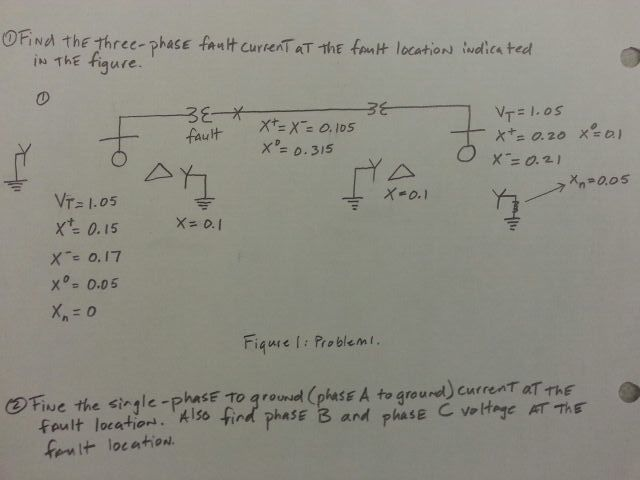 ① Find the three-phase fault current at the fault location indicated
in the figure.
①
fault
X⁺ = X⁻ = 0.105
X⁰ = 0.315
V_T = 1.05
X⁺ = 0.20 X⁰ = 0.1
X⁻ = 0.21
X_n = 0.05
V_T = 1.05
X⁺ = 0.15
X⁻ = 0.17
X⁰ = 0.05
X_n = 0
X = 0.1
X = 0.1
Figure 1: Problem 1.
② Fine the single-phase to ground (phase A to ground) current at the
fault location. Also find phase B and phase C voltage at the
fault location.